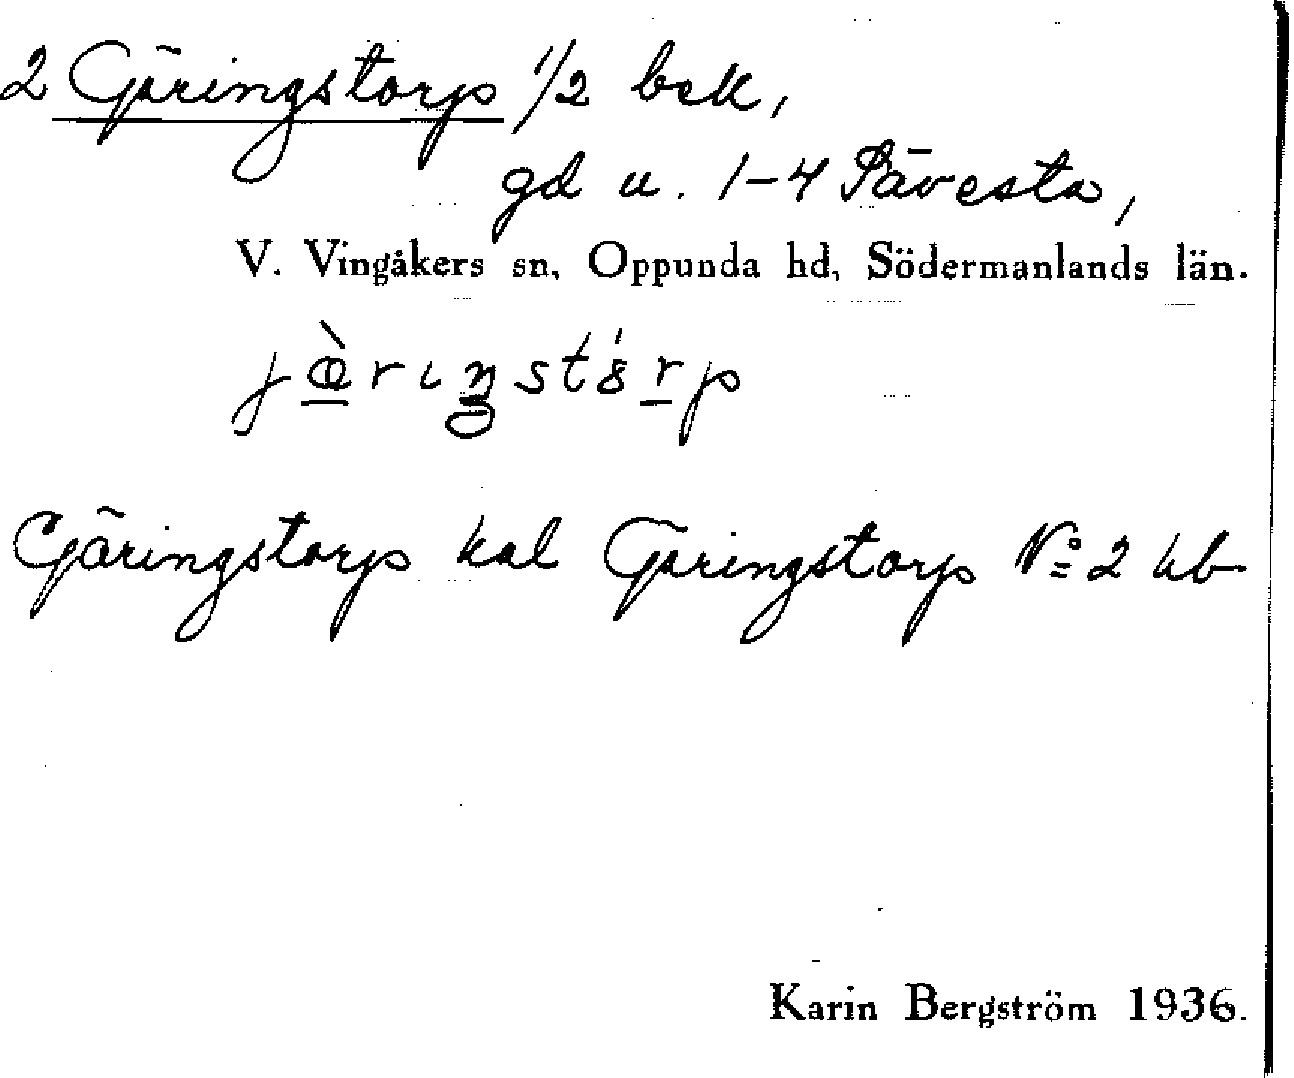 2 Gäringstorp 1/2 bek,
gd u. 1-4 Sävesta,
V. Vingåkers sn, Oppunda hd, Södermanlands län.
Gäringstorp kal Gäringstorp No 2 kb
Karin Bergström 1936.